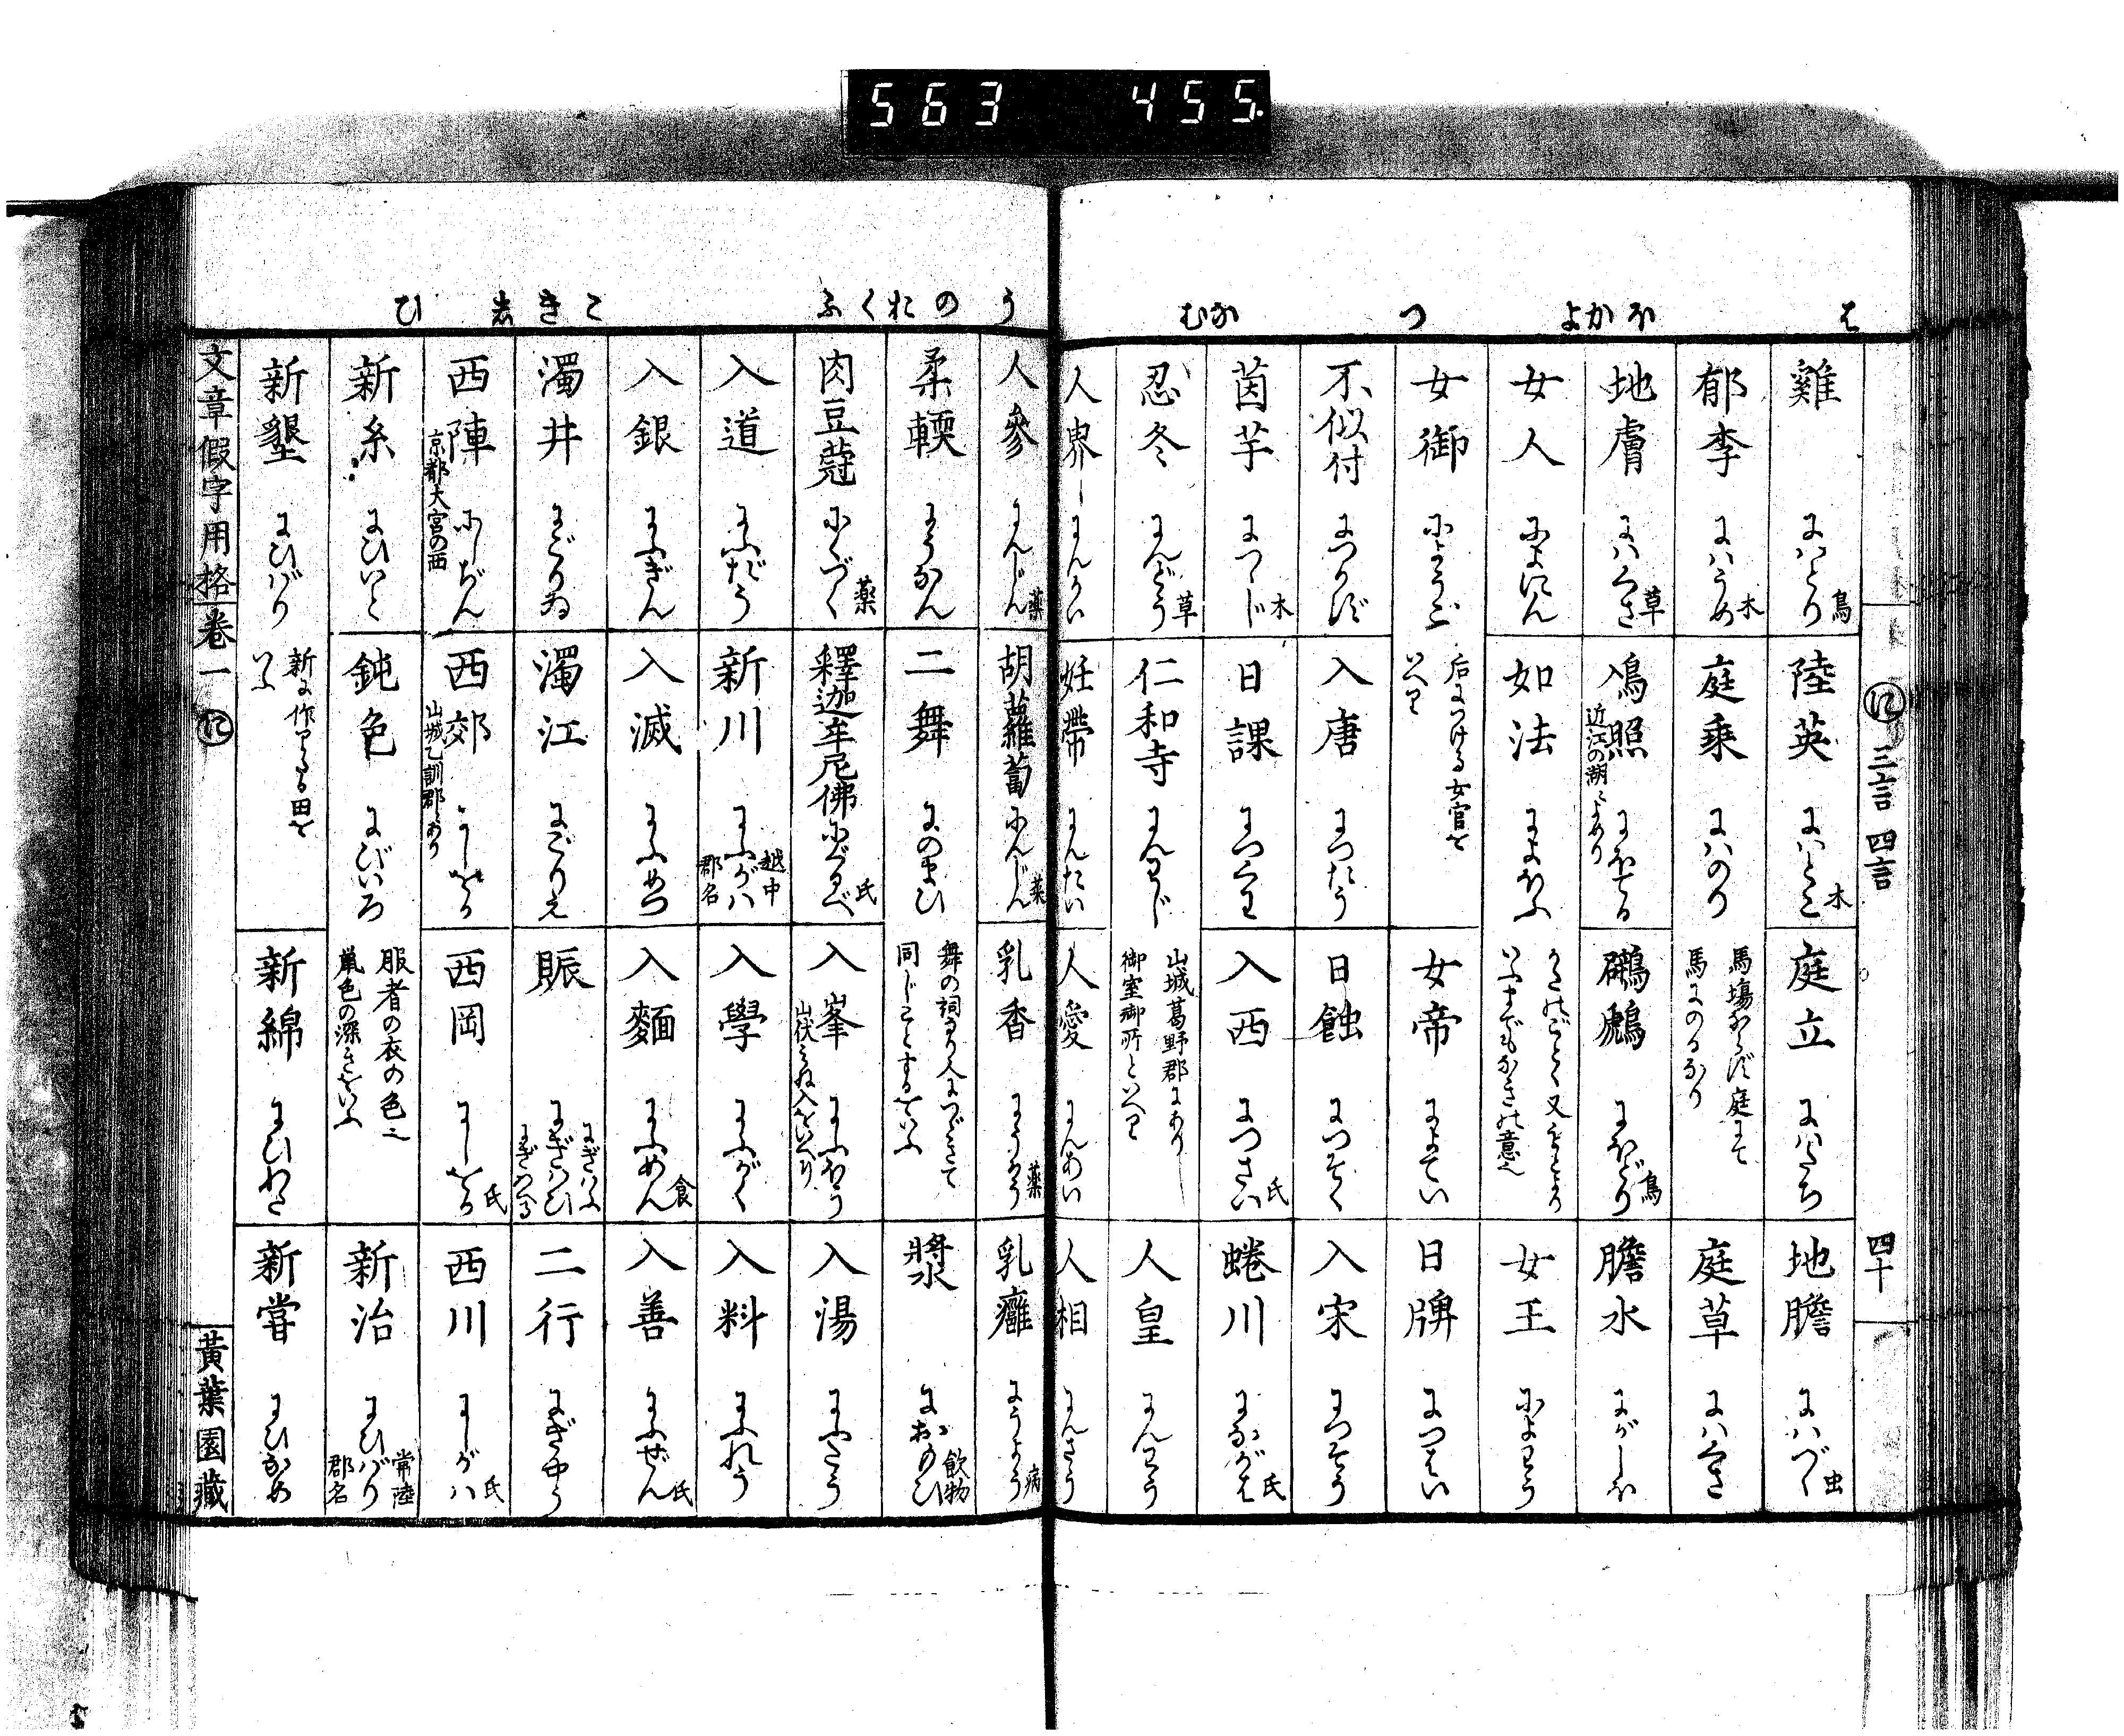 563 455.
は
ほかよ
つ
なむ
に 三言 四言 四十
雞 にはとり 鳥
陸英 にはとこ 木
庭立 にはたち
地膽 にはつゞ 虫
郁李 にはうめ 木
庭乗 にはのり 馬場ならず庭にて馬にのるなり
庭草 にはくさ
地膚 にはくさ 草
鳰照 にほてる 近江の湖によめり
鸊鷉 にほどり 鳥
膽水 にがしほ
女人 によにん
如法 によほふ かたのごとく又もとよりいふまでもなきの意也
女王 によわう
女御 によようご 后につける女官をいへり
女帝 によてい
日牌 につぱい
不似付 につかず
入唐 につたう
日蝕 につそく
入宋 につそう
茵芋 につゝじ 木
日課 につくわ
入西 につさい 氏
蜷川 にながは 氏
忍冬 にんどう 草
仁和寺 にんわじ 山城葛野郡にあり御室御所といへり
人皇 にんわう
人界 にんがい
妊帶 にんたい
人愛 にんあい
人相 にんさう
う
の
お
く
ふ
こ
き
し
ひ
人參 にんじん 藥
胡蘿蔔 にんじん 菜
乳香 にうかう 藥
乳癰 にうよう 病
柔輭 にうなん
二舞 にのまひ 舞の詞なり人につゞきて同じことするをいふ
漿 におもひ 飲物
肉豆蔲 にくづく 藥
釋迦牟尼佛 にくるべ 氏
入峯 にふぶう 山伏のみね入をいへり
入湯 にふたう
入道 にふだう
新川 にふがは 越中郡名
入學 にふがく
入料 にふれう
入銀 にふぎん
入滅 にふめつ
入麵 にふめん 食
入善 にふぜん 氏
濁井 にごりゐ
濁江 にごりえ
賑 にぎはふ にぎはひ にぎはゝし
二行 にぎやう
西陣 にしぢん 京都大宮の西
西郊 にしをか 山城乙訓郡にあり
西岡 にしをか 氏
西川 にしがは 氏
新糸 にひいと
鈍色 にびいろ 服者の衣の色也鼠色の深きをいふ
新治 にひばり 常陸郡名
新墾 にひばり 新に作りたる田をいふ
新綿 にひわた
新嘗 にひなめ
文章假字用格 卷一 に 黃葉園藏